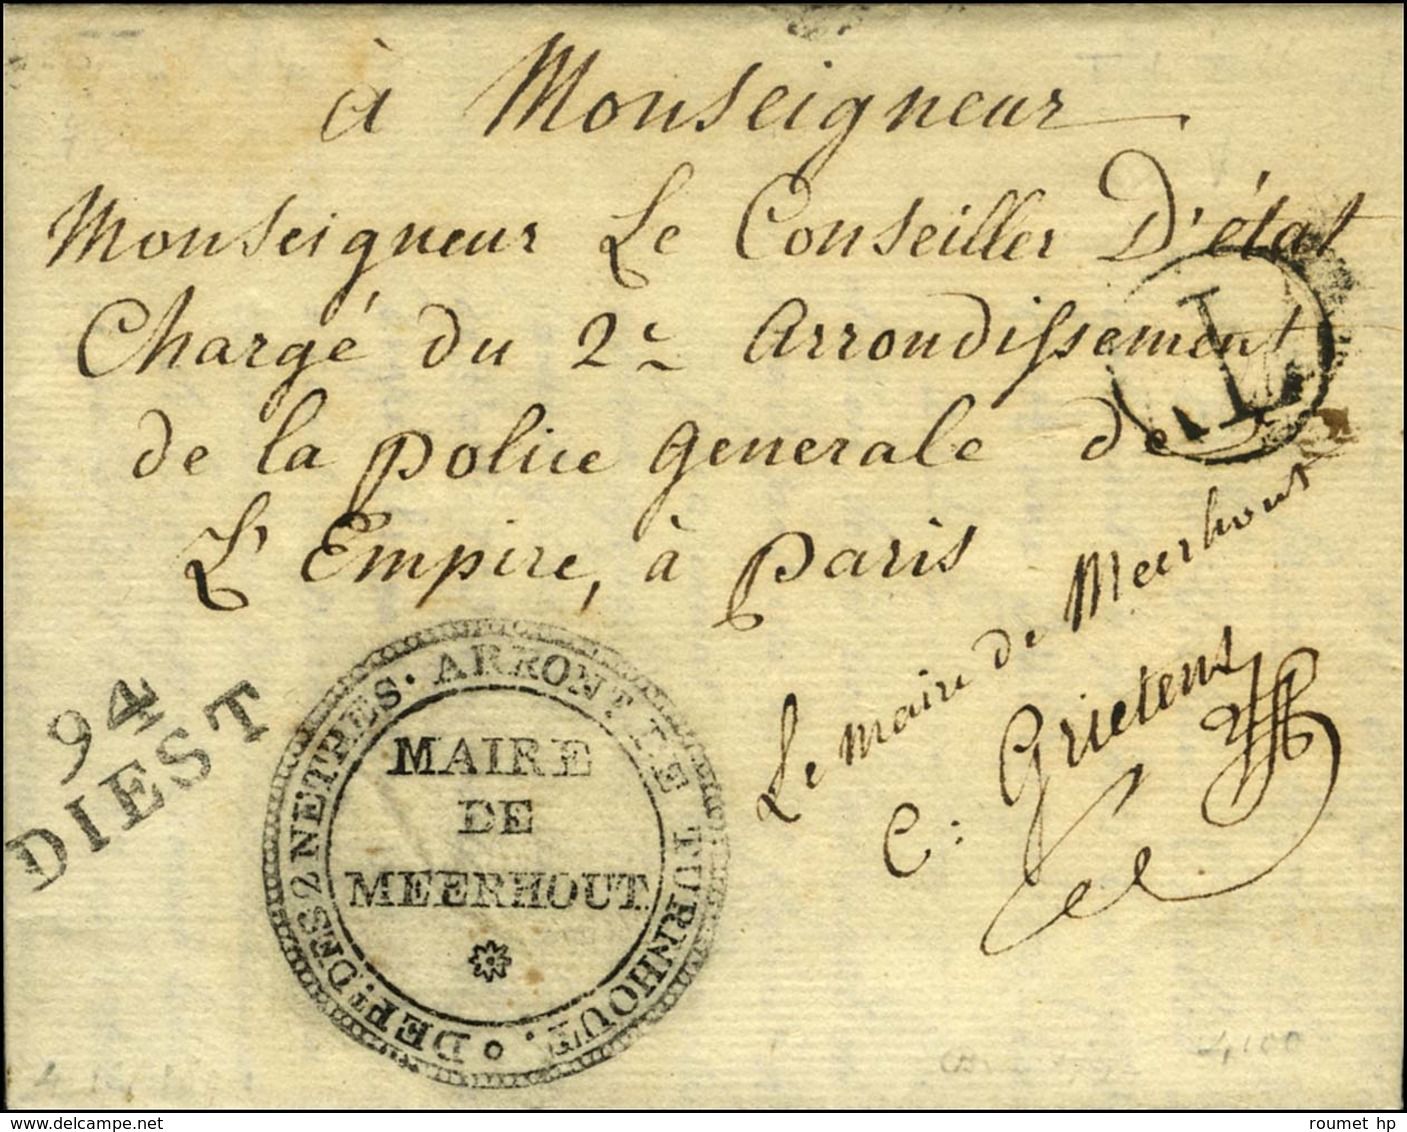 à Monseigneur
Monseigneur Le Conseiller D'état
Chargé du 2e Arrondissement
de la police generale de
L'Empire, à Paris
Le maire de Meerhout
C: Grietens
94
DIEST
DEPT. DES 2 NETHES. ARRONT. DE TURNHOUT.
MAIRE
DE
MEERHOUT.
4,100
roumet hp